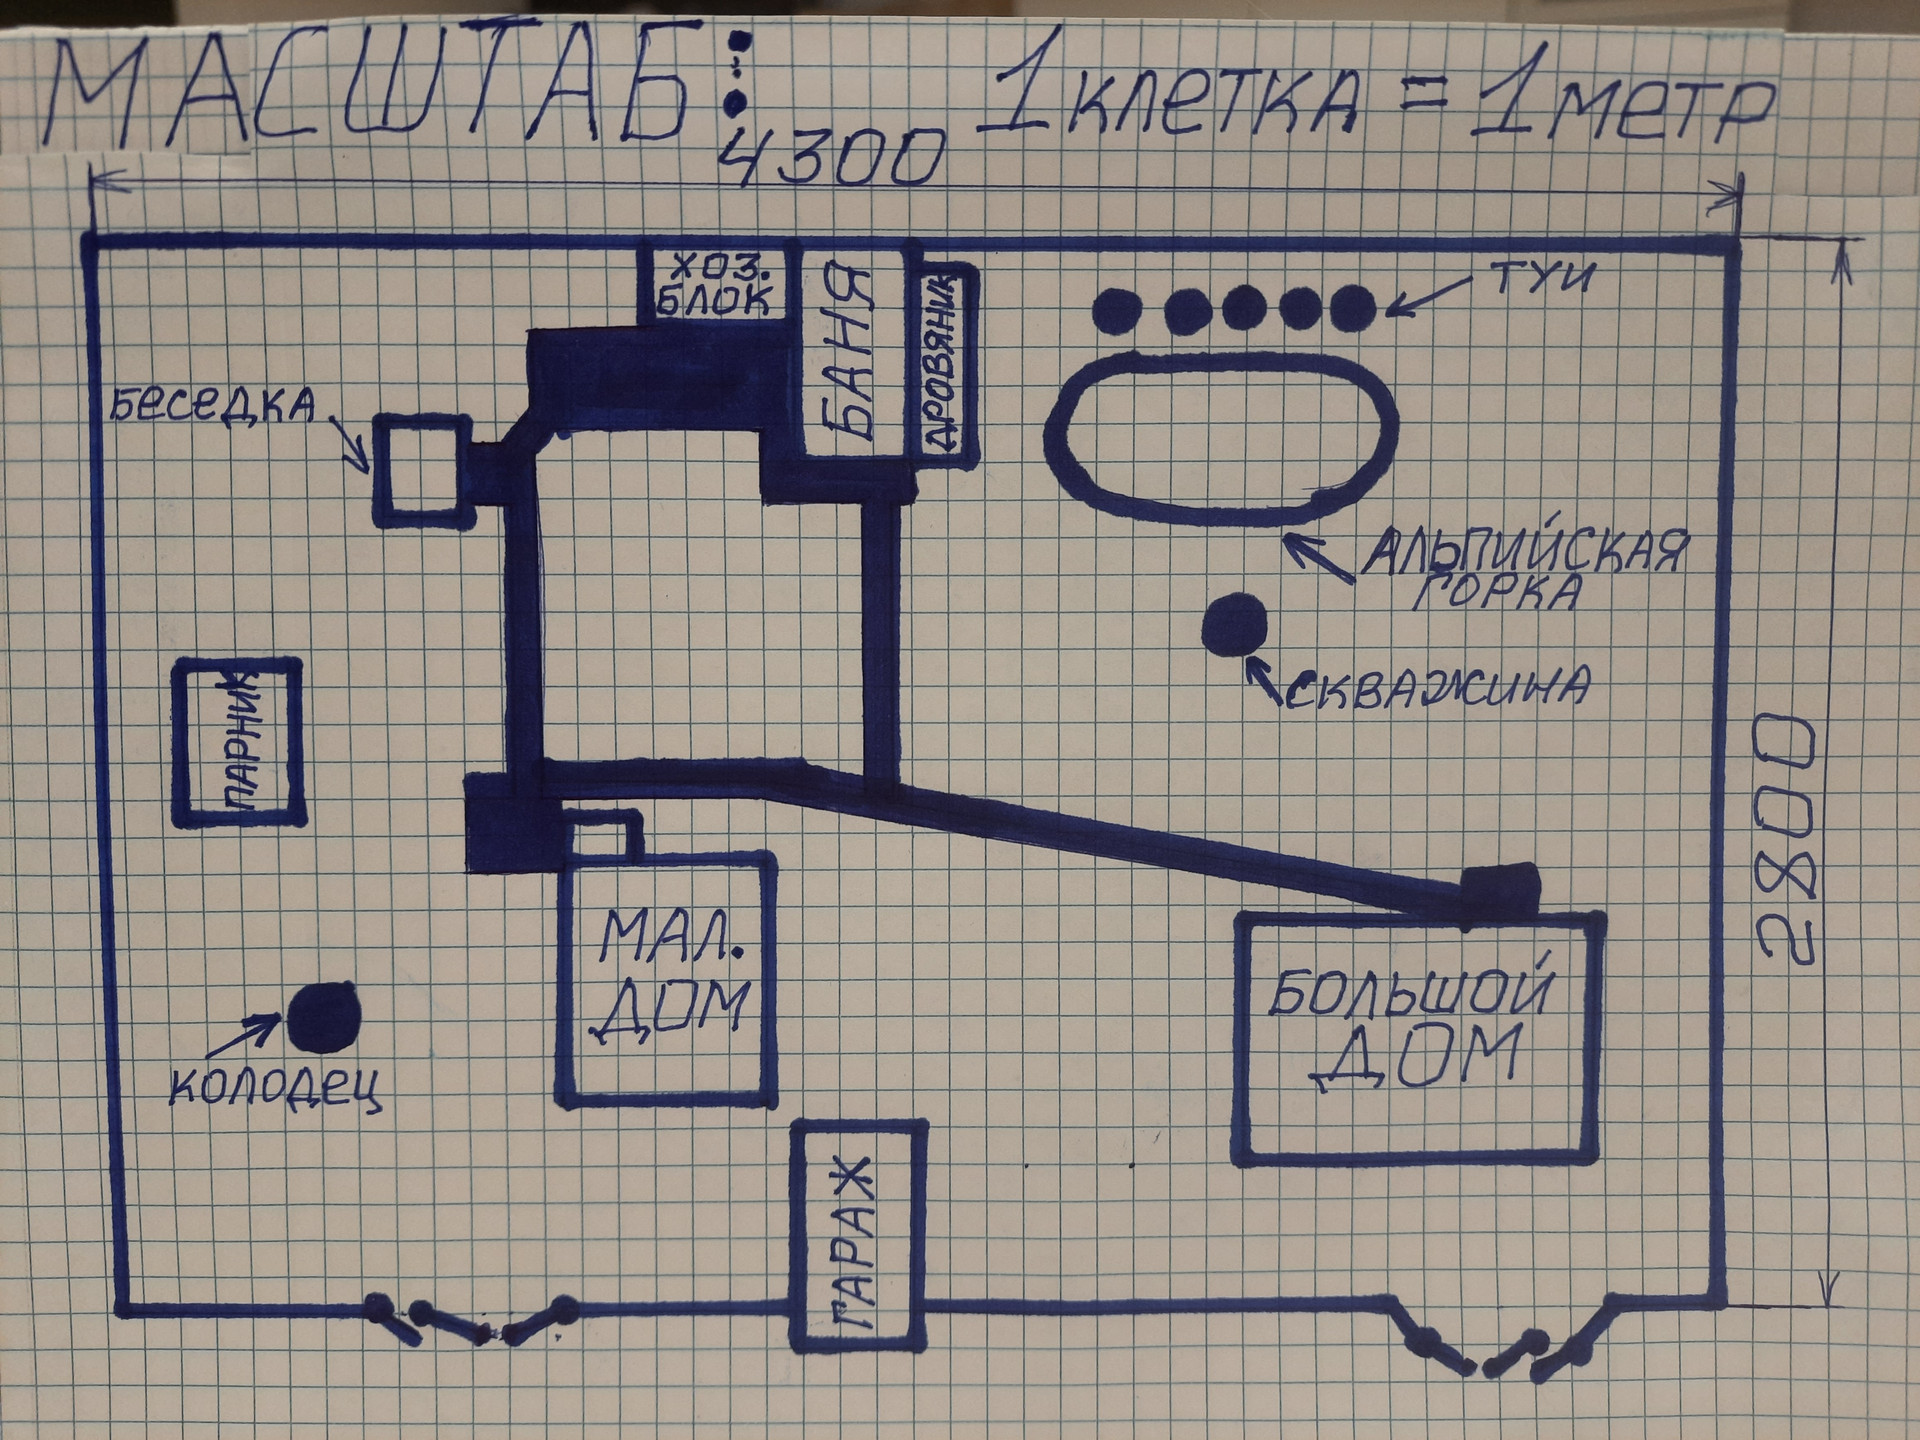 МАСШТАБ: 1клетка = 1метр
4300
ХОЗ.
БЛОК
БАНЯ
ДРОВЯНИК
ТУИ
БЕСЕДКА
АЛЬПИЙСКАЯ
ГОРКА
СКВАЖИНА
ПАРНИК
2800
МАЛ.
ДОМ
БОЛЬШОЙ
ДОМ
КОЛОДЕЦ
ГАРАЖ